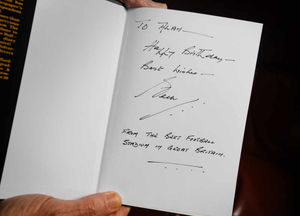 To Alan —
Happy Birthday —
Best wishes —
From the Best Football
Stadium in Great Britain.